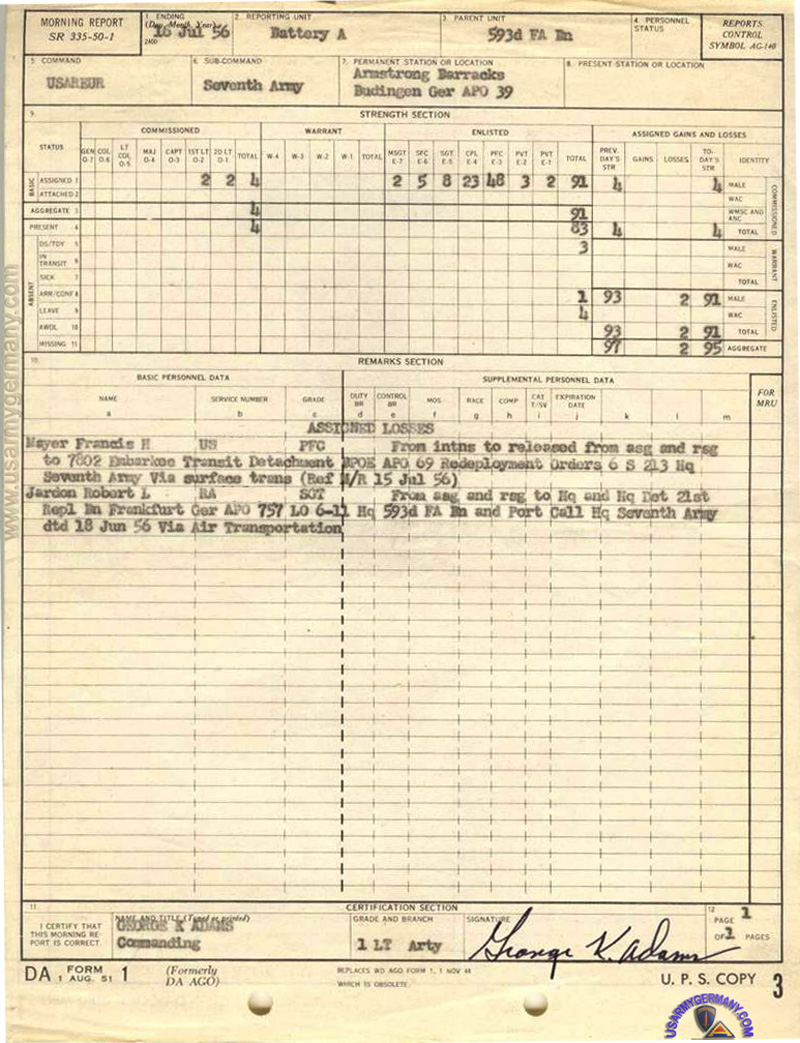 MORNING REPORT
SR 335-50-1
1. ENDING
(Day, Month, Year)
2400
16 Jul 56
2. REPORTING UNIT
Battery A
3. PARENT UNIT
593d FA Bn
4. PERSONNEL STATUS
REPORTS
CONTROL
SYMBOL AG-140
5. COMMAND
USAREUR
6. SUB-COMMAND
Seventh Army
7. PERMANENT STATION OR LOCATION
Armstrong Barracks
Budingen Ger APO 39
8. PRESENT STATION OR LOCATION
9. STRENGTH SECTION
STATUS COMMISSIONED WARRANT ENLISTED ASSIGNED GAINS AND LOSSES
GEN O-7 COL O-6 LT COL O-5 MAJ O-4 CAPT O-3 1ST LT O-2 2D LT O-1 TOTAL W-4 W-3 W-2 W-1 TOTAL MSGT E-7 SFC E-6 SGT E-5 CPL E-4 PFC E-3 PVT E-2 PVT E-1 TOTAL PREV. DAY'S STR GAINS LOSSES TO-DAY'S STR IDENTITY
BASIC ASSIGNED 1 2 2 4 2 5 8 23 48 3 2 91 4 4 MALE COMMISSIONED
ATTACHED 2 WAC
AGGREGATE 3 4 91 WMSC AND ANC
PRESENT 4 4 83 4 4 TOTAL
ABSENT DS/TDY 5 3 MALE WARRANT
IN TRANSIT 6 WAC
SICK 7 TOTAL
ARR/CONF 8 1 93 2 91 MALE ENLISTED
LEAVE 9 4 WAC
AWOL 10 93 2 91 TOTAL
MISSING 11 97 2 95 AGGREGATE
10. REMARKS SECTION
BASIC PERSONNEL DATA SUPPLEMENTAL PERSONNEL DATA FOR MRU
NAME SERVICE NUMBER GRADE DUTY BR CONTROL BR MOS RACE COMP CAT T/SV EXPIRATION DATE
a b c d e f g h i j k l m
ASSIGNED LOSSES
Mayer Francis H US PFC From intns to released from asg and rsg
to 7802 Embarkee Transit Detachment BPOE APO 69 Redeployment Orders 6 S 213 Hq
Seventh Army Via surface trans (Ref M/R 15 Jul 56)
Jardon Robert L RA SGT From asg and rsg to Hq and Hq Det 21st
Repl Bn Frankfurt Ger APO 757 LO 6-11 Hq 593d FA Bn and Port Call Hq Seventh Army
dtd 18 Jun 56 Via Air Transportation
11. CERTIFICATION SECTION
I CERTIFY THAT
THIS MORNING RE-
PORT IS CORRECT.
NAME AND TITLE (Typed or printed)
GEORGE K ADAMS
Commanding
GRADE AND BRANCH
1 LT Arty
SIGNATURE
George K. Adams
12
PAGE 1
OF 1 PAGES
DA FORM 1
1 AUG. 51
(Formerly
DA AGO)
REPLACES WD AGO FORM 1, 1 NOV 44
WHICH IS OBSOLETE.
U. P. S. COPY 3
www.usarmygermany.com
USARMYGERMANY.COM